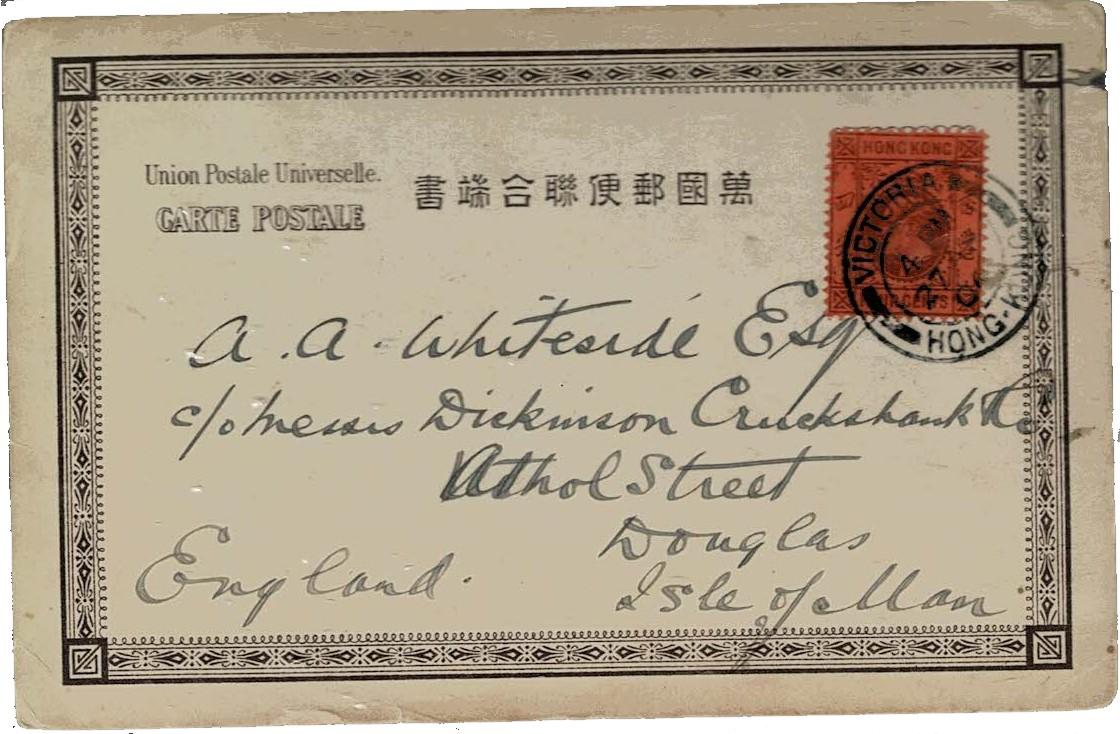 Union Postale Universelle.
CARTE POSTALE
萬國郵便聯合端書
HONG KONG
CENTS
VICTORIA
HONG-KONG
A. A. Whiteside Esq
c/o Messrs Dickinson Cruickshank & Co
Athol Street
Douglas
Isle of Man
England.